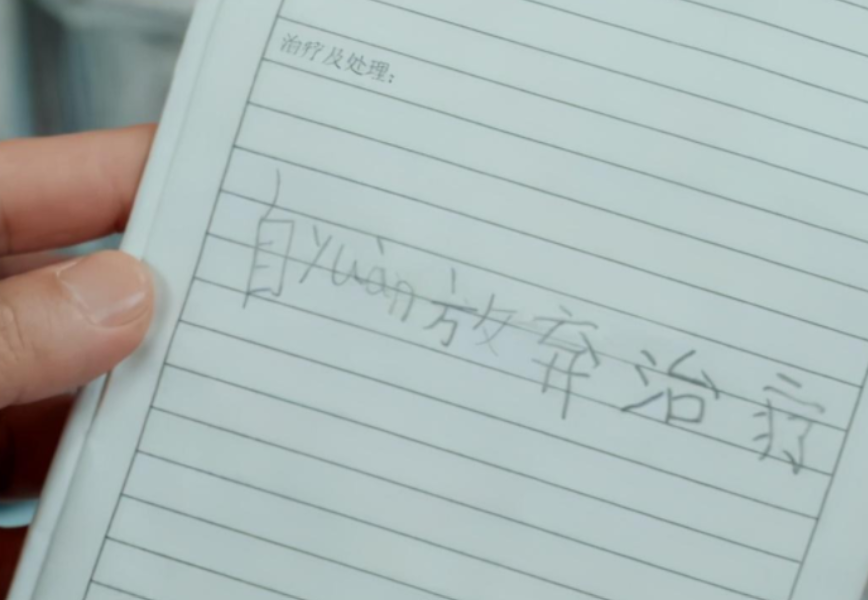 治疗及处理：
自yuàn放弃治疗